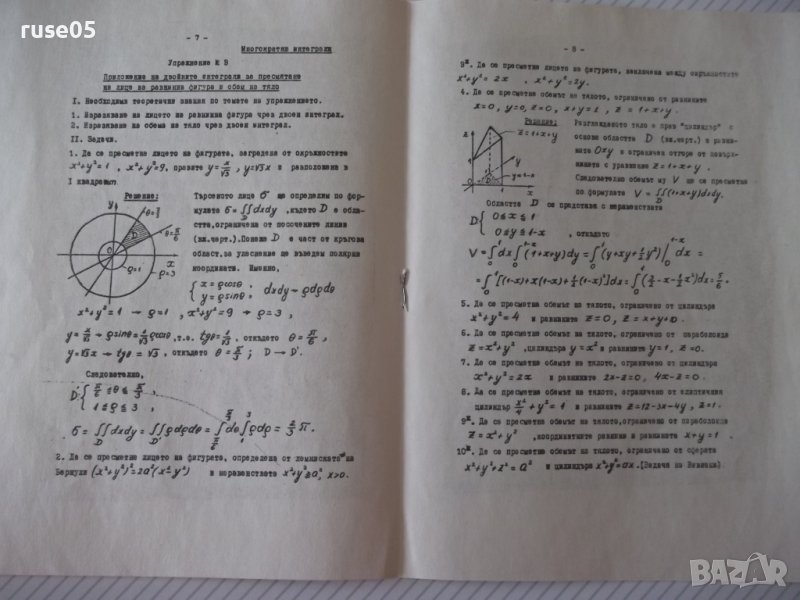 ruse05
- 7 -
Многократни интеграли
Упражнение № 3
Приложение на двойните интеграли за пресмятане
на лице на равнинна фигура и обем на тяло
I. Необходими теоретични знания по темата на упражнението.
1. Изразяване на лицето на равнинна фигура чрез двоен интеграл.
2. Изразяване на обема на тяло чрез двоен интеграл.
II. Задачи.
1. Да се пресметне лицето на фигурата, заградена от окръжностите
x²+y²=1 , x²+y²=9, правите y=x/√3 , y=√3x и разположена в
I квадрант.
Решение: Търсеното лице σ ще определим по фор-
мулата σ=∬dxdy ,където D е обла-
D
стта,ограничена от посочените линии
(вж.черт.).Понеже D е част от кръгова
област,за улеснение ще въведем полярни
координати. Именно,
y θ=π/3 θ=π/6 D 0 x ρ=1 ρ=3
{ x=ρcosθ, y=ρsinθ, dxdy→ρdρdθ
x²+y²=1 → ρ=1 , x²+y²=9 → ρ=3 ,
y=x/√3 → ρsinθ=1/√3 ρcosθ, т.е. tgθ=1/√3, откъдето θ=π/6 ,
y=√3x → tgθ=√3, откъдето θ=π/3 ; D→D'.
Следователно,
D' { π/6≤θ≤π/3 , 1≤ρ≤3 ,
σ=∬dxdy=∬ρdρdθ=∫dθ∫ρdρ=2/3 π.
2. Да се пресметне лицето на фигурата, определена от лемнискатата на
Бернули (x²+y²)²=2a²(x²-y²) и неравенствата x²+y²≥a², x>0.
- 8 -
3*. Да се пресметне лицето на фигурата, заключена между окръжностите
x²+y²=2x , x²+y²=2y.
4. Да се пресметне обемът на тялото, ограничено от равнините
x=0, y=0, z=0, x+y=1 , z=1+x+y.
Решение: Разглежданото тяло е прав "цилиндър" с
z=1+x+y
основа областта D (вж.черт.) в равни-
ната Oxy и ограничен отгоре от повърх-
нината с уравнение z=1+x+y.
Следователно обемът му V ще се пресметне
по формулата V=∬(1+x+y)dxdy.
D
Областта D се представя с неравенствата
D { 0≤x≤1 , 0≤y≤1-x , откъдето
V=∫dx∫(1+x+y)dy=∫(y+xy+½y²)|dx=
=∫[(1-x)+x(1-x)+½(1-x)²]dx=∫(3/2-x-½x²)dx=5/6.
5. Да се пресметне обемът на тялото, ограничено от цилиндъра
x²+y²=4 и равнините z=0, z=x+y+10.
6. Да се пресметне обемът на тялото, ограничено от параболоида
z=x²+y² ,цилиндъра y=x² и равнините y=1, z=0.
7. Да се пресметне обемът на тялото, ограничено от цилиндъра
x²+y²=2x и равнините 2x-z=0, 4x-z=0.
8. Да се пресметне обемът на тялото, ограничено от елиптичния
цилиндър x²/4+y²=1 и равнините z=12-3x-4y, z=1.
9*. Да се пресметне обемът на тялото,ограничено от параболоида
z=x²+y² ,координатните равнини и равнината x+y=1
10*. Да се пресметне обемът на тялото, ограничено от сферата
x²+y²+z²=a² и цилиндъра x²+y²=ax.(Задача на Вивиани).
BAZAR